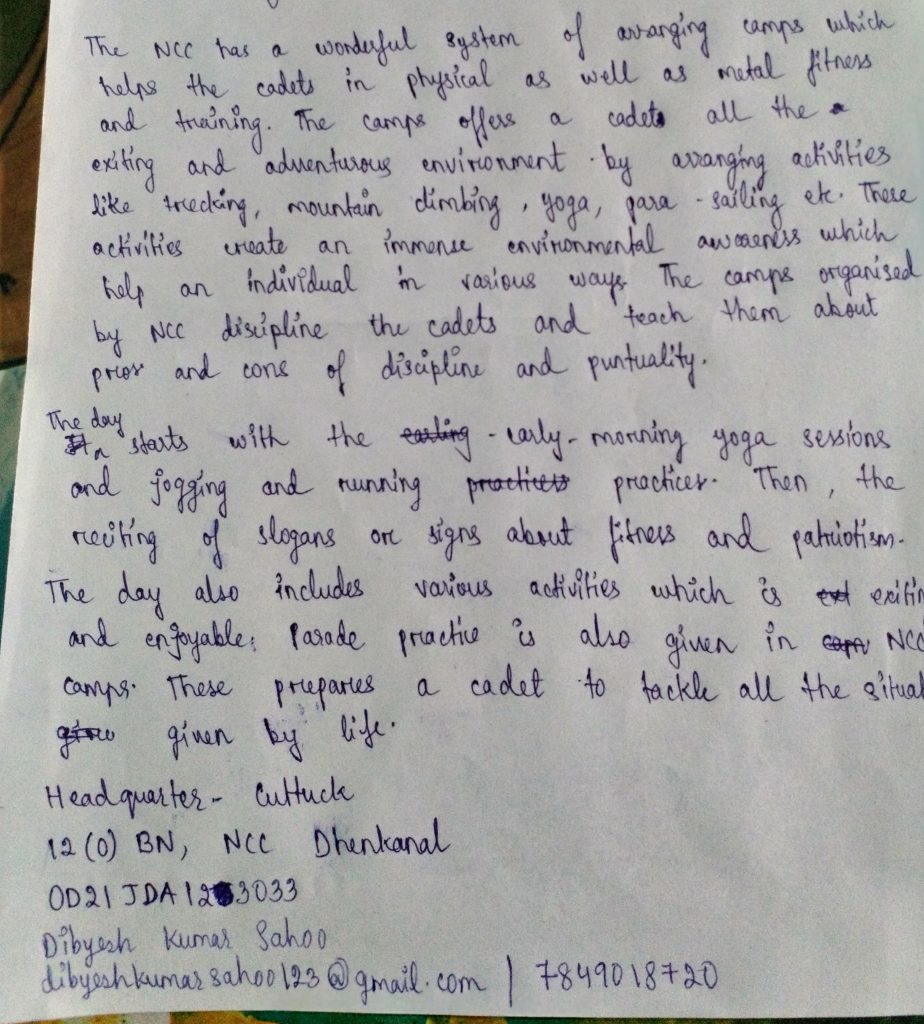 The NCC has a wonderful system of arranging camps which
helps the cadets in physical as well as metal fitness
and training. The camps offers a cadets all the
exiting and adventurous environment by arranging activities
like trecking, mountain climbing, yoga, para-sailing etc. These
activities create an immense environmental awareness which
help an individual in various ways. The camps organised
by NCC discipline the cadets and teach them about
pros and cons of discipline and puntuality.
The day
starts with the early-morning yoga sessions
and jogging and running practices. Then, the
reciting of slogans or signs about fitness and patriotism.
The day also includes various activities which is exitin
and enjoyable; Parade practice is also given in NCC
camps. These prepares a cadet to tackle all the situat
given by life.
Headquarter - Cuttuck
12 (O) BN, NCC Dhenkanal
OD21 JDA 123033
Dibyesh Kumar Sahoo
dibyeshkumarsahoo123@gmail.com | 7849018720